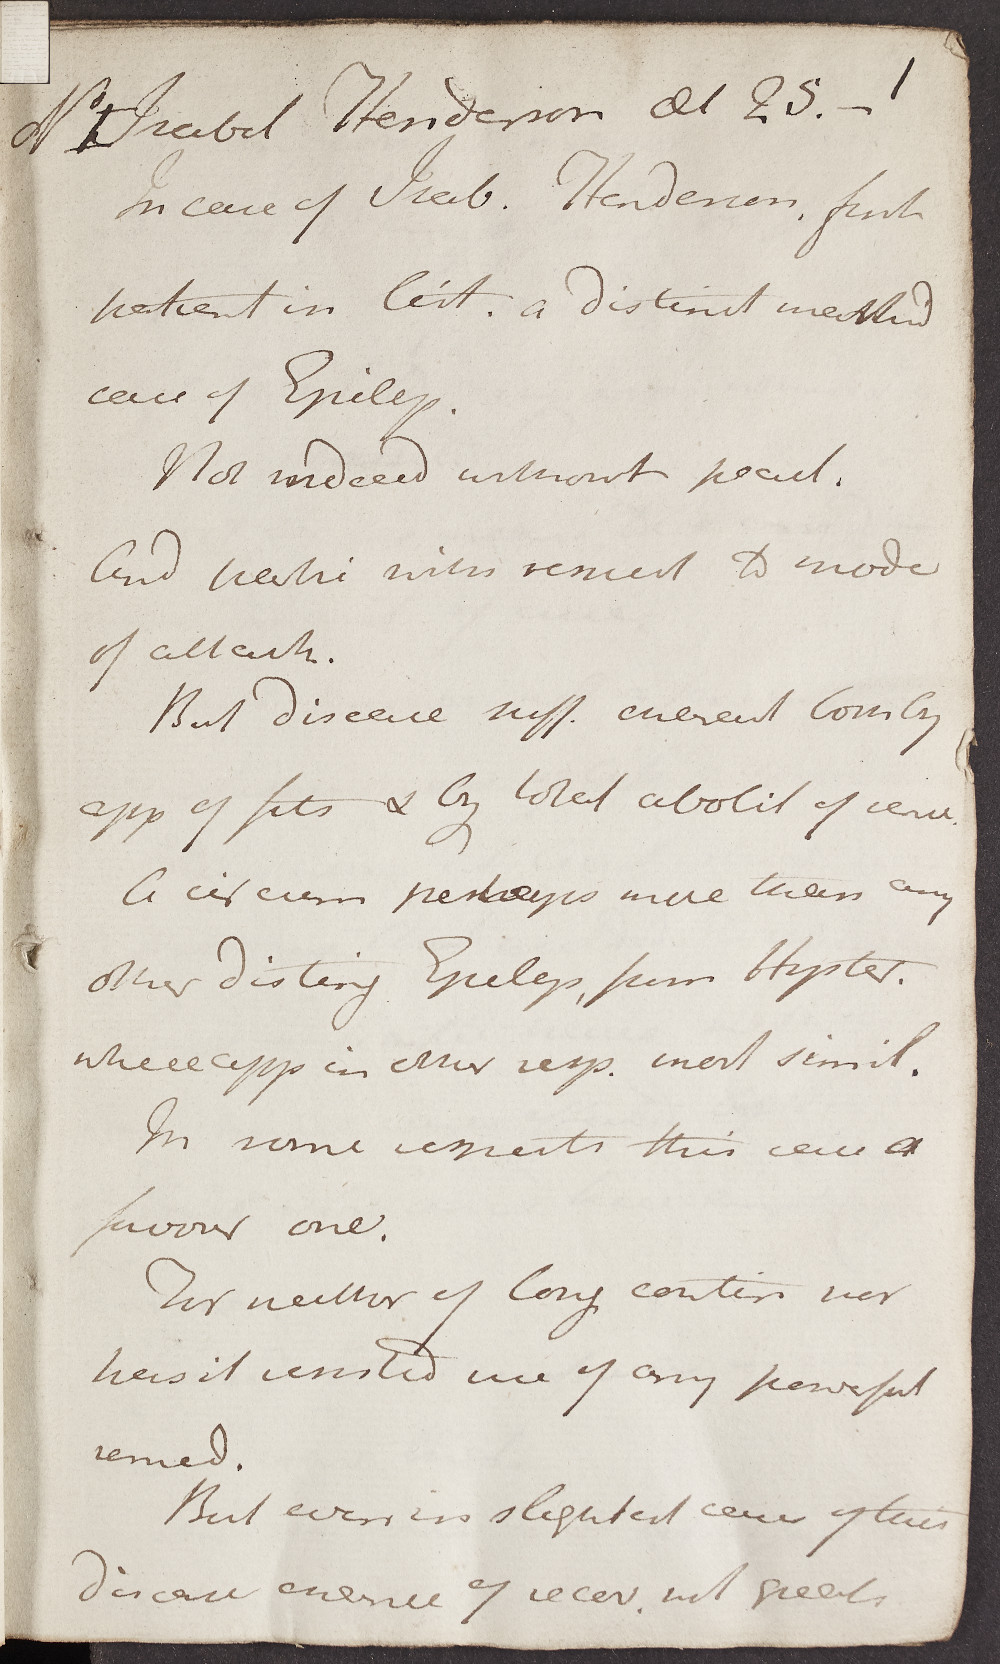 No 1 Isabel Henderson Æt 25. – 1
In case of Isab. Henderson, first
patient in list. a distinct marked
case of Epilep.
Not indeed without pecul.
And partic with respect to mode
of attack.
But disease suff. evident both by
app of fits & by total abolit of sense.
A circum perhaps more than any
other disting Epilep, from Hyster.
where app in other resp. most simil.
In some respects this case a
favour one.
For neither of long contin nor
has it resisted use of any powerful
remed.
But even in slightest cases of this
disease chance of recov. not great